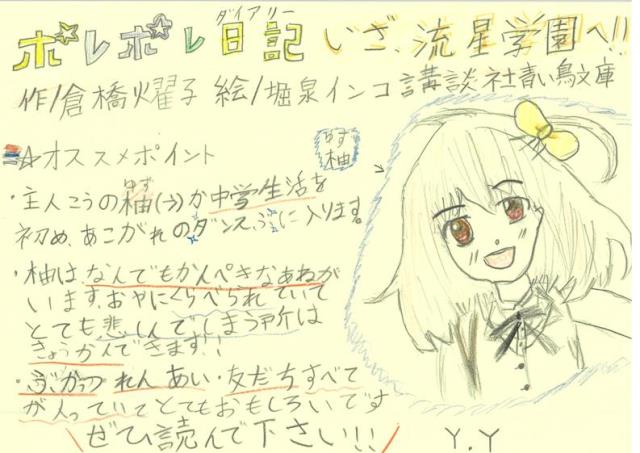 ダイアリー
ポレポレ日記 いざ、流星学園へ!!
作/倉橋燿子 絵/堀泉インコ 講談社青い鳥文庫
☆オススメポイント
ゆず
柚
ゆず
・主人こうの柚(→)が中学生活を
初め、あこがれのダンスぶに入ります。
・柚はなんでもかんぺきなあねが
います。おやにくらべられていて
とても悲しんでしまう所は
きょうかんできます!!
・ぶかつ・れんあい・友だちすべて
が入っていてとてもおもしろいです
\ぜひ読んで下さい!!/
Y.Y